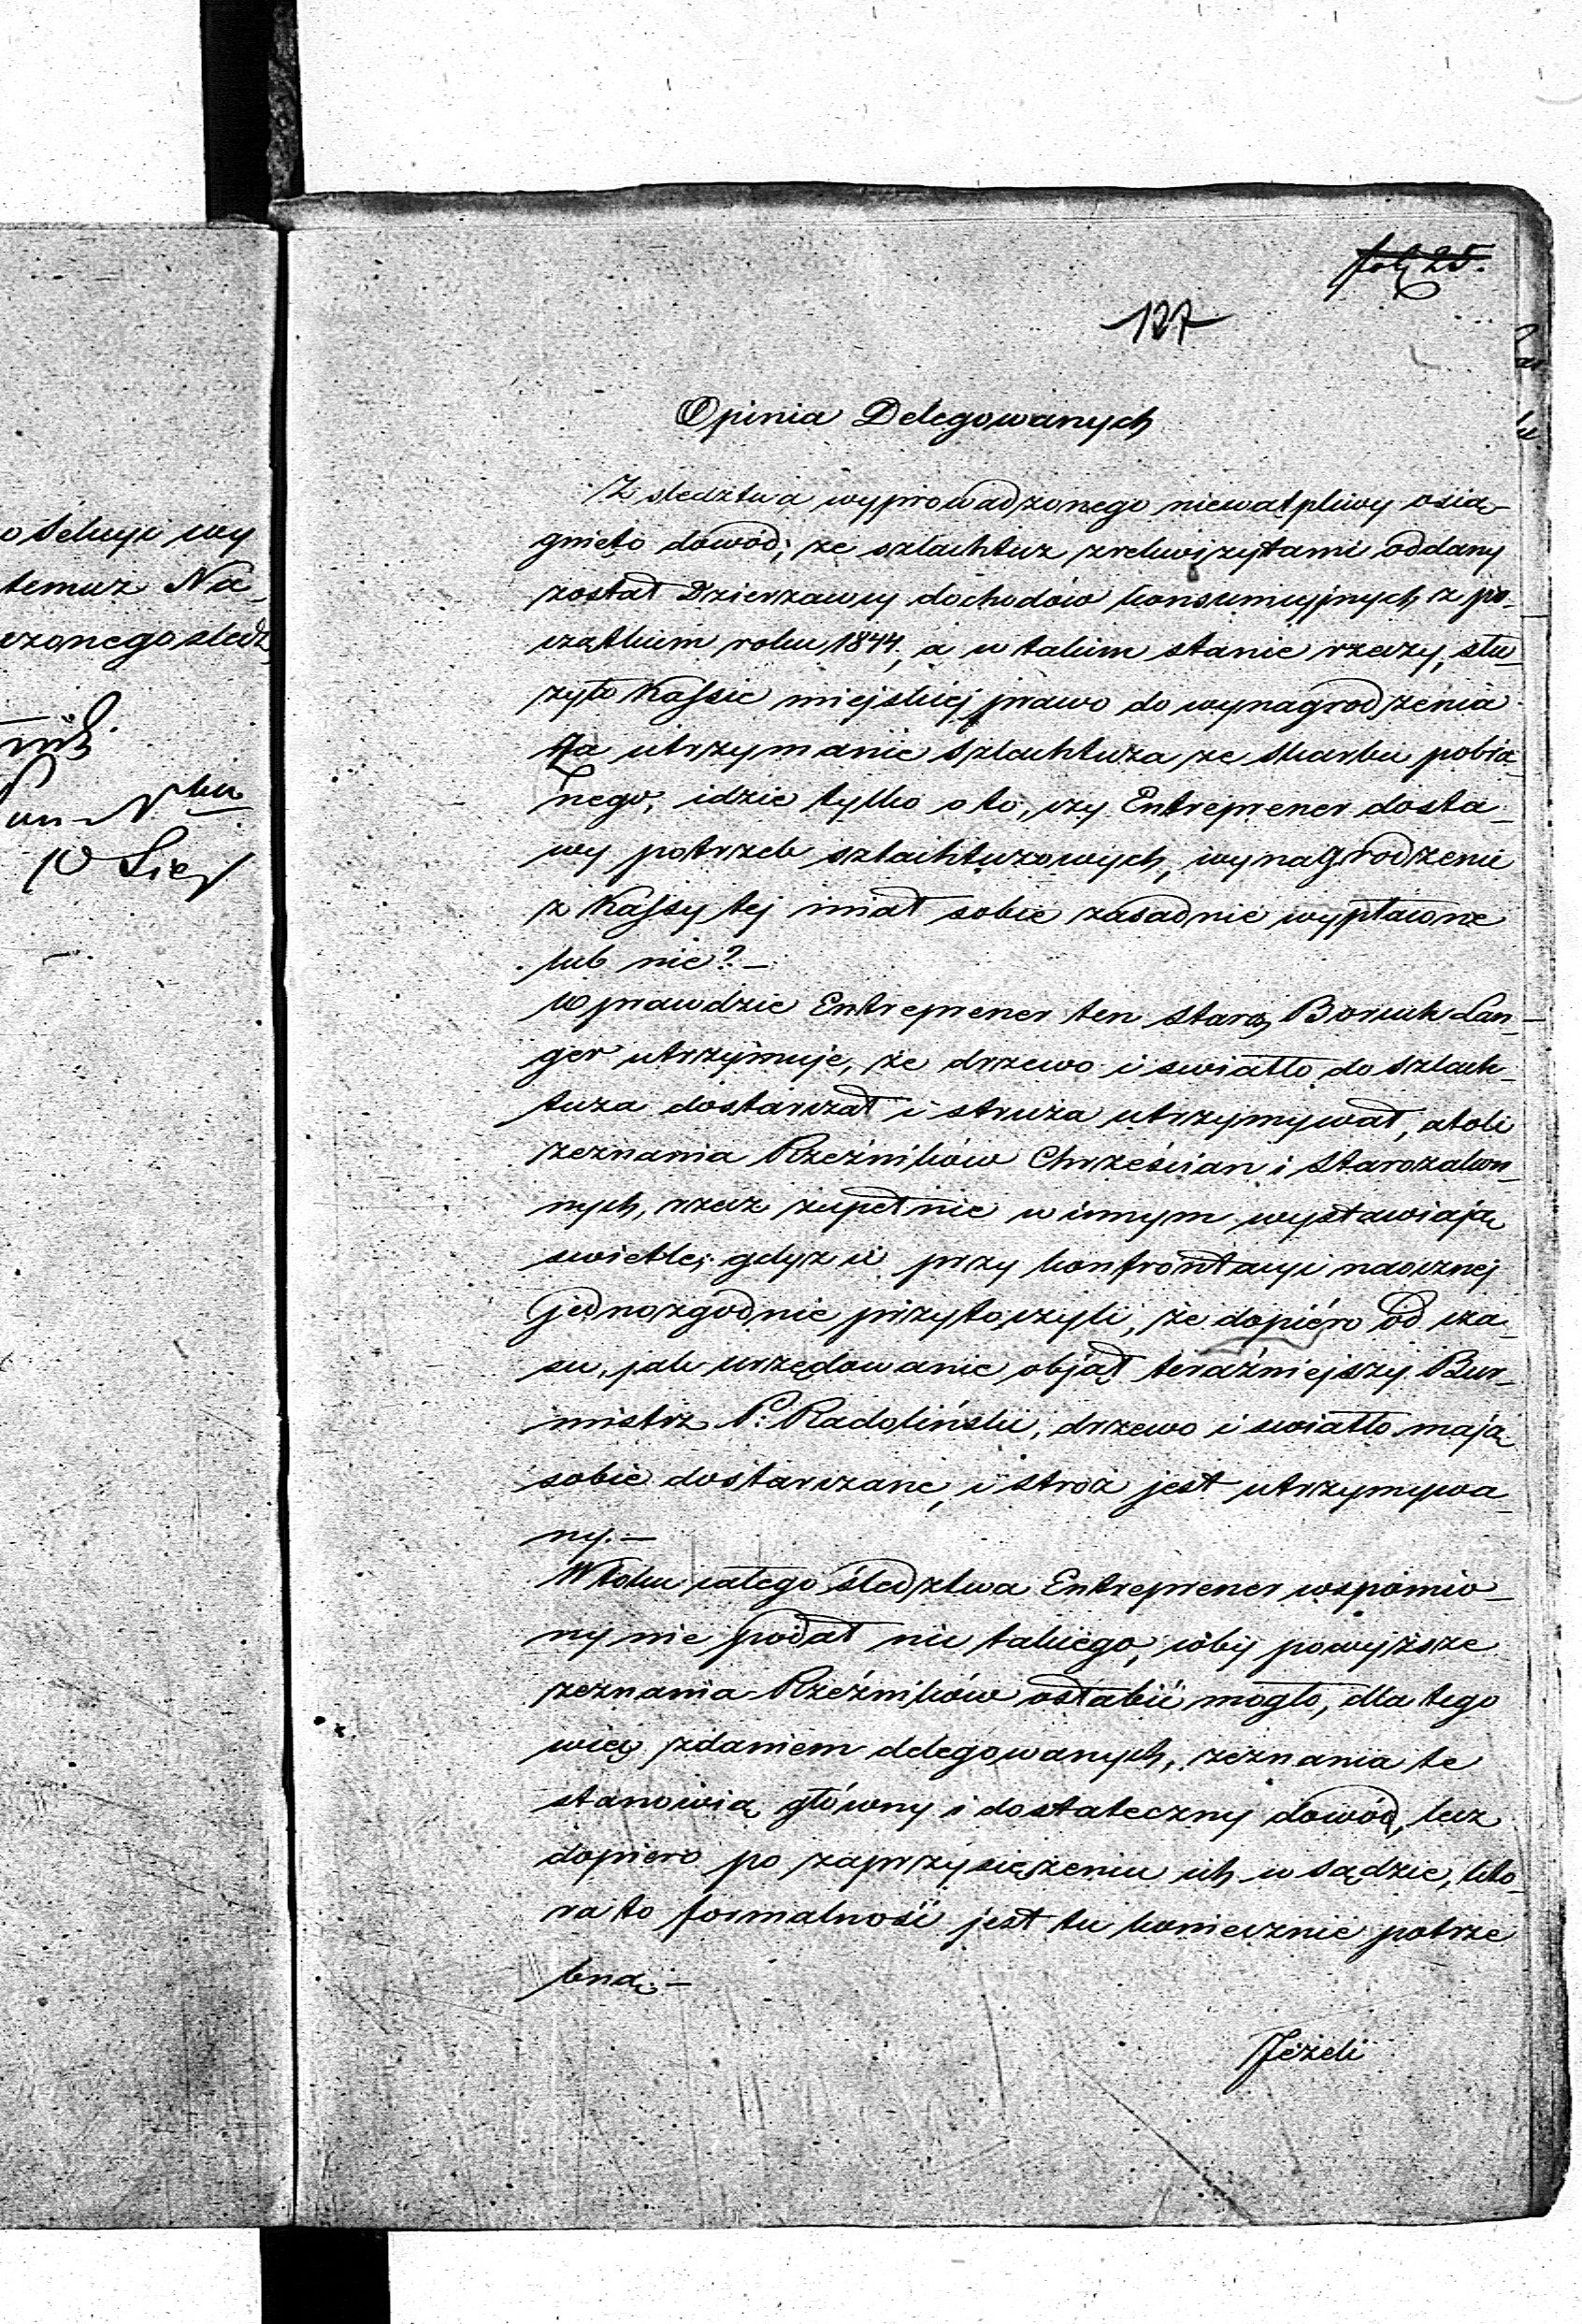 127
Opinia Delegowanych
Z sledztwa wyprowadzonego niewątpliwy osią-
gnięto dowód; że szlachtuz z rekwizytami oddany
został Dzierzawcy dochodów konsumcyjnych z po-
czątkiem roku 1844., a w takim stanie rzeczy, słu-
żyło Kassie miejskiej prawo do wynagrodzenia
Za utrzymanie szlachtuza ze skarbu pobra-
nego; idzie tylko o to, czy Entreprener dosta-
wy potrzeb szlachtuzowych, wynagrodzenie
z Kassy tej miał sobie zasadnie wypłacone
lub nie? —
Wprawdzie Entreprener ten staroz Boruch Lan-
ger utrzymuje, że drzewo i swiatło do szlach-
tuza dostarczał i struża utrzymywał, atoli
zeznania Rzeźników Chrześcian i Starozakon-
nych, rzecz zupełnie w innym wystawiają
swietle; gdyz ci przy konfrontacyi naocznej
jednozgodnie przytoczyli, że dopiéro od cza-
su, jak urzędowanie objął teraźniejszy Bur-
mistrz P: Radoliński, drzewo i swiatło mają
sobie dostarczane, i stroż jest utrzymywa-
ny. —
W toku całego śledztwa Entreprener wspomio-
ny nie podał nic takiego, coby powyższe
zeznania Rzeźników osłabić mogło, dla tego
więc zdaniem delegowanych, zeznania te
stanowią główny i dostateczny dowód, lecz
dopiero po zaprzysiężeniu ich w sądzie, któ-
ra to formalność jest tu koniecznie potrze
bną. —
Jeżeli
temuz Na-
czonego sledz